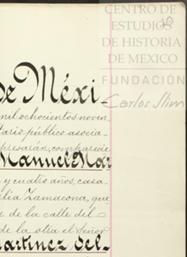 CENTRO DE
ESTUDIOS
DE HISTORIA
DE MEXICO
FUNDACIÓN
Carlos Slim
de Méxi-
mil ochocientos noven
tario público asocia-
presarán, comparecie
Manuel Mar
y cuatro años, casa
dia Zamacona, que
e de la calle del
de la otra el Señor
Martinez del